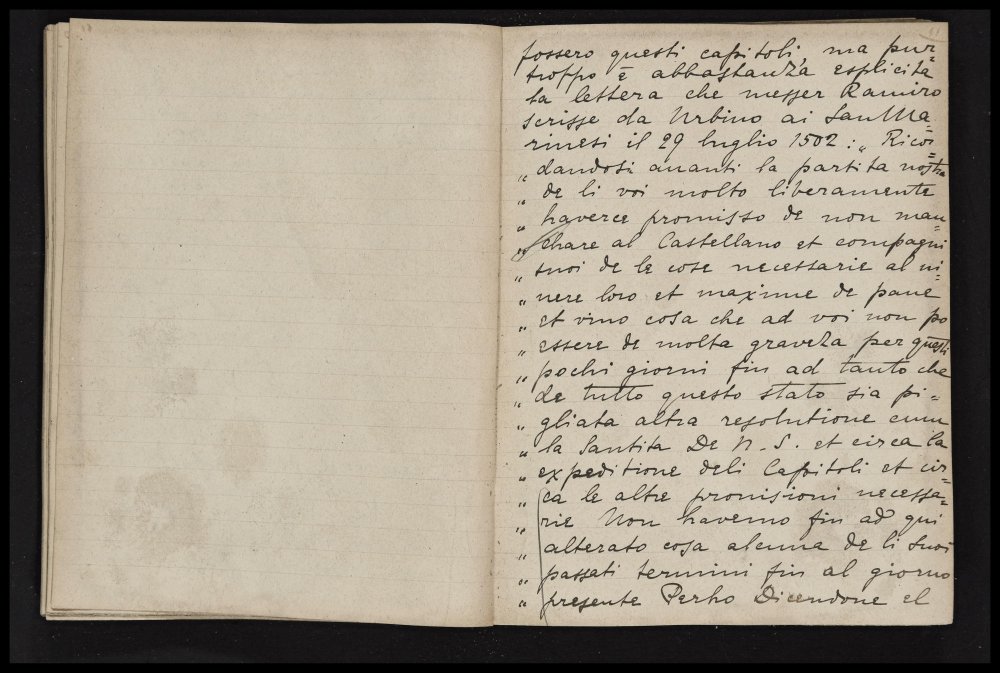 fossero questi capitoli, ma pur=
troppo è abbastanza esplicita
la lettera che messer Ramiro
scrisse da Urbino ai San Ma=
rinesi il 29 luglio 1502: „ Ricor=
„ dandosi auanti la partita nostra
„ de li voi molto liberamente
„ haverce promisso de non man=
„ chare al Castellano et compagni
„ suoi de le cose necessarie al ui=
„ uere loro et maxime de pane
„ et vino cosa che ad voi non po
„ essere de molta graveza per questi
„ pochi giorni fin ad tanto che
„ de tutto questo stato sia pi=
„ gliata altra resolutione cum
„ la Santita De N. S. et circa la
„ expeditione deli Capitoli et cir=
„ ca le altre prouisioni necessa=
„ rie Non havemo fin ad qui
„ alterato cosa alcuna de li suoi
„ passati termini fin al giorno
„ presente Perho Dicendone el